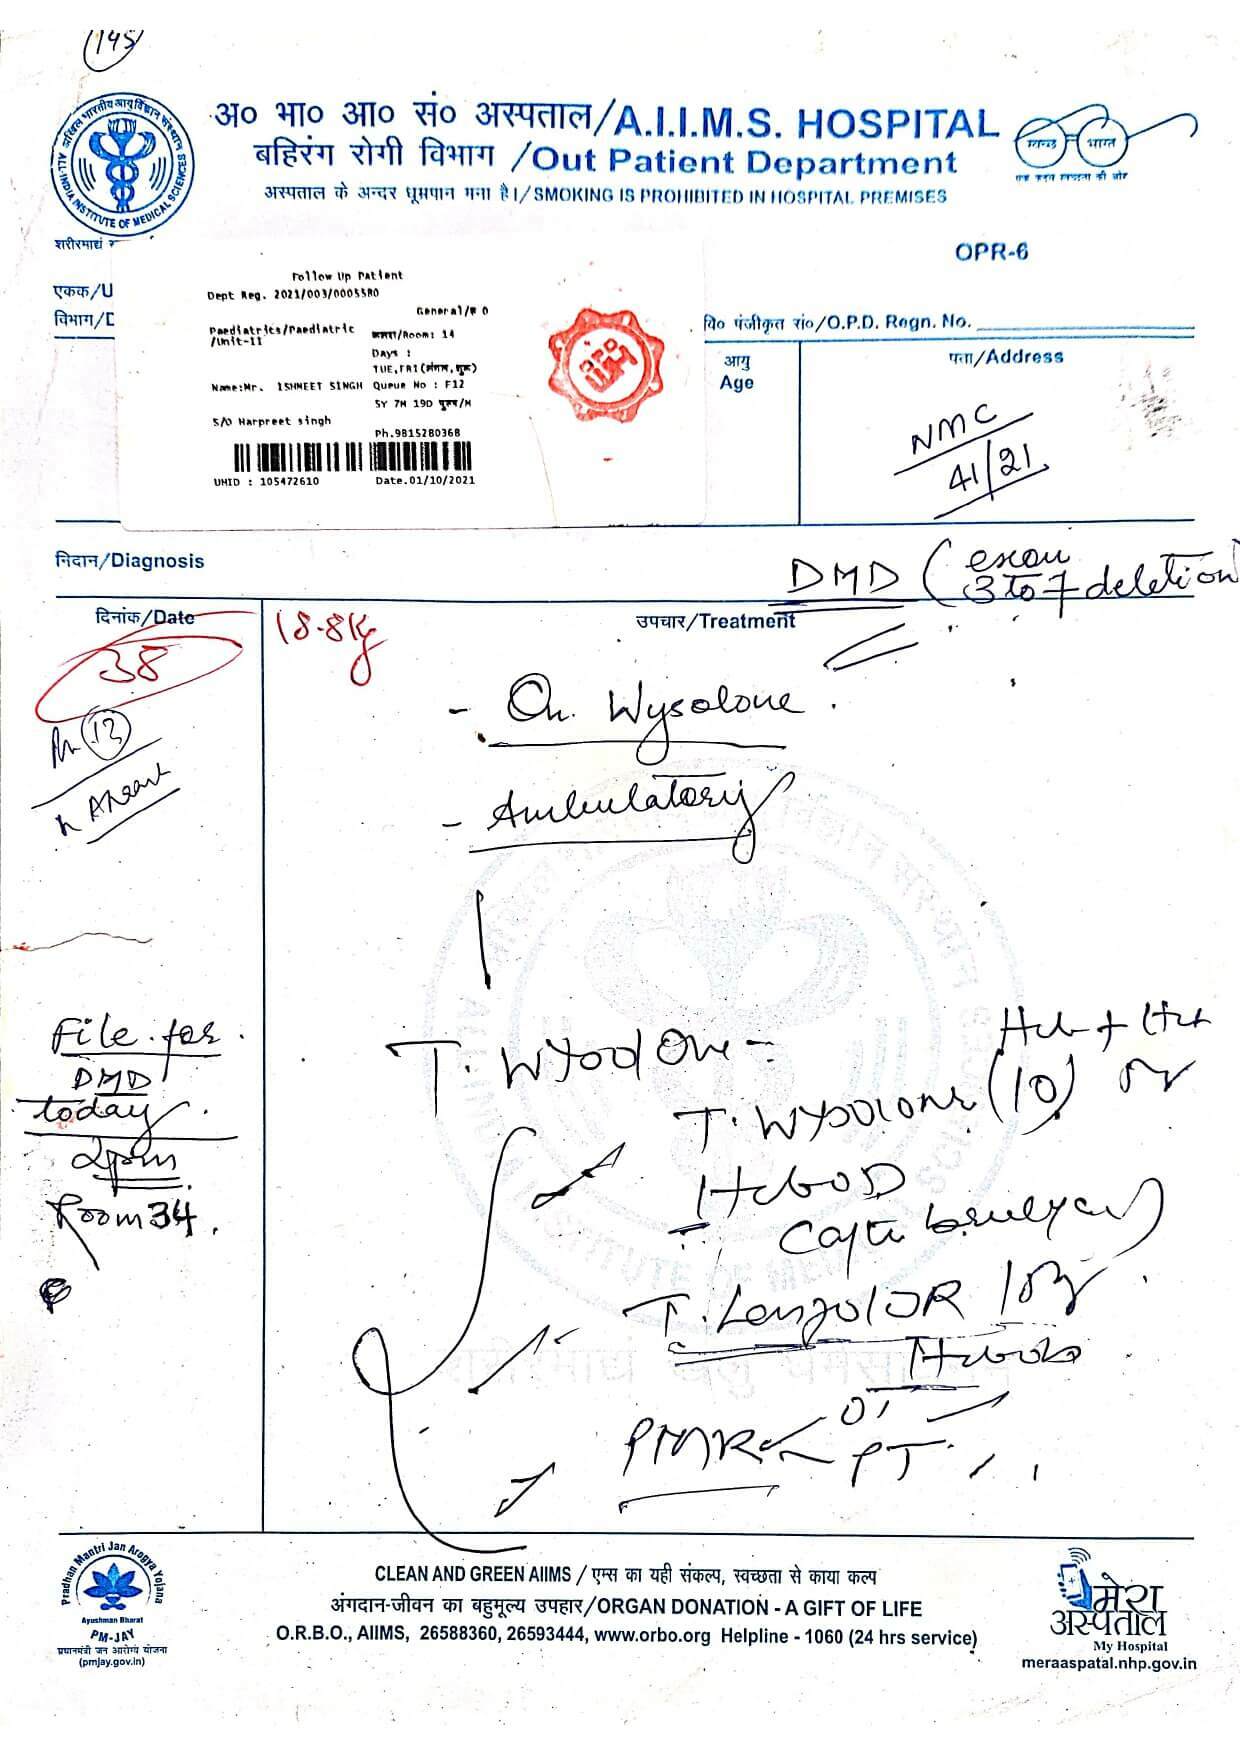 145
अ० भा० आ० सं० अस्पताल/A.I.I.M.S. HOSPITAL
बहिरंग रोगी विभाग /Out Patient Department
अस्पताल के अन्दर धूम्रपान मना है।/SMOKING IS PROHIBITED IN HOSPITAL PREMISES
ALL INDIA INSTITUTE OF MEDICAL SCIENCES
स्वच्छ भारत
एक कदम स्वच्छता की ओर
शरीरमाद्यं
OPR-6
एकक/U
विभाग/D
Follow Up Patient
Dept Reg. 2021/003/0005580
General/₹ 0
Paediatrics/Paediatric
/Unit-II
कमरा/Room: 14
Days :
TUE,FRI(मंगल,शुक्र)
Name:Mr. ISHMEET SINGH Queue No : F12
5Y 7M 19D पुरुष/M
S/O Harpreet singh
Ph.9815280368
UHID : 105472610 Date.01/10/2021
वि० पंजीकृत सं०/O.P.D. Regn. No.
आयु
Age
पता/Address
NMC
41/21
निदान/Diagnosis
DMD (exon
3 to 7 deletion
दिनांक/Date
उपचार/Treatment
38
18.8kg
- On Wysolone.
- Ambulatory
File for
DMD
today
2pm
Room 34.
T. Wysolone
T. Wysolone (10)
PMR OT
PT
Pradhan Mantri Jan Arogya Yojana
Ayushman Bharat
PM-JAY
प्रधानमंत्री जन आरोग्य योजना
(pmjay.gov.in)
CLEAN AND GREEN AIIMS / एम्स का यही संकल्प, स्वच्छता से काया कल्प
अंगदान-जीवन का बहुमूल्य उपहार/ORGAN DONATION - A GIFT OF LIFE
O.R.B.O., AIIMS, 26588360, 26593444, www.orbo.org Helpline - 1060 (24 hrs service)
मेरा
अस्पताल
My Hospital
meraaspatal.nhp.gov.in